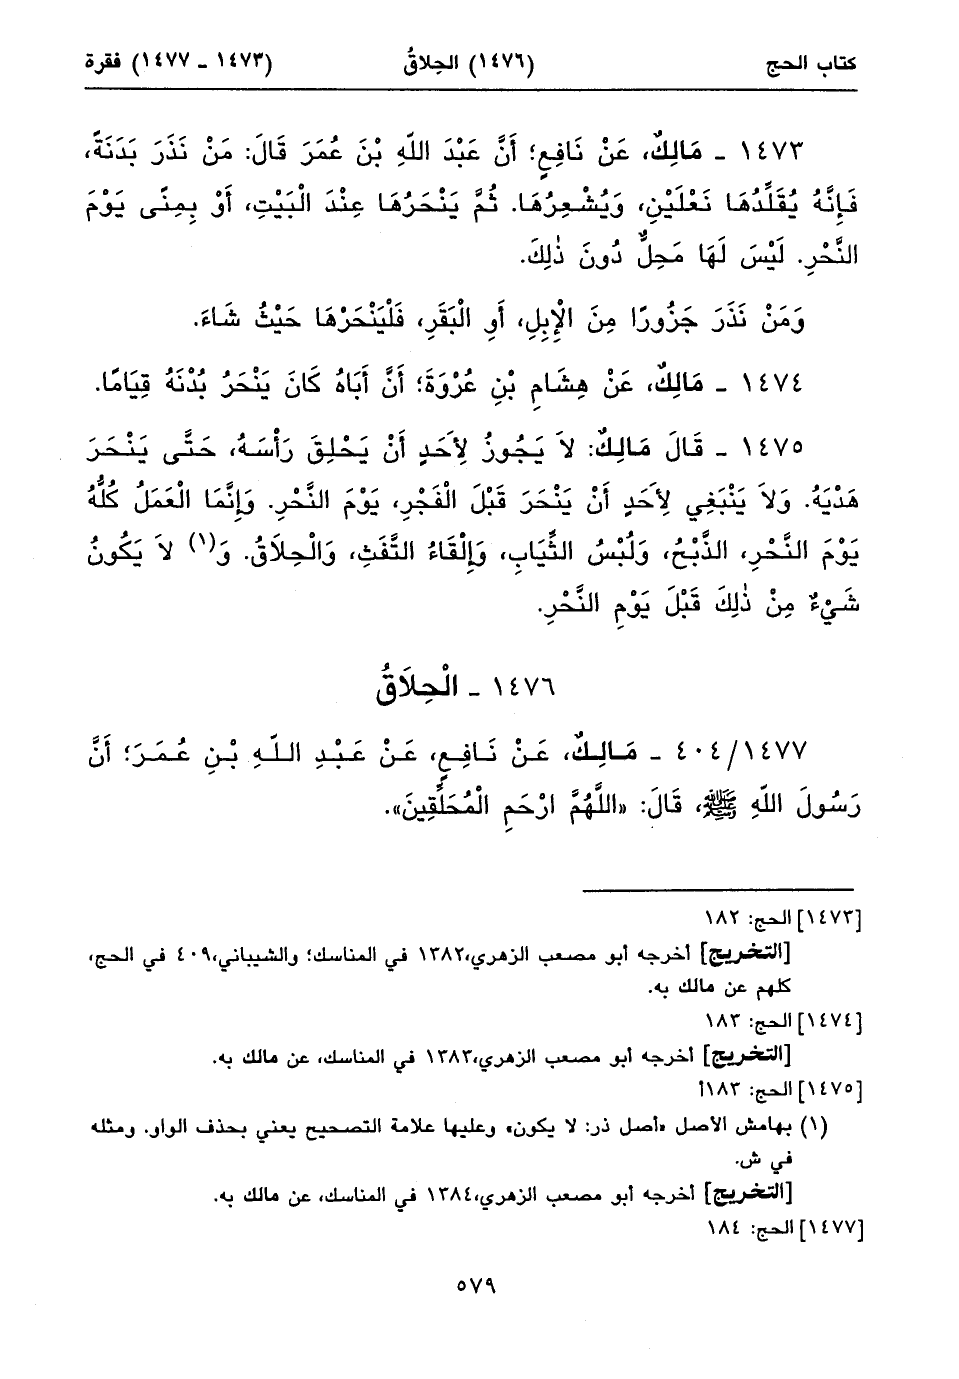 كتاب الحج (١٤٧٦) الحِلاقُ (١٤٧٣ - ١٤٧٧) فقرة
١٤٧٣ - مَالِكٌ، عَنْ نَافِعٍ؛ أَنَّ عَبْدَ اللّهِ بْنَ عُمَرَ قَالَ: مَنْ نَذَرَ بَدَنَةً،
فَإِنَّهُ يُقَلِّدُهَا نَعْلَيْنِ، وَيُشْعِرُهَا. ثُمَّ يَنْحَرُهَا عِنْدَ الْبَيْتِ، أَوْ بِمِنًى يَوْمَ
النَّحْرِ. لَيْسَ لَهَا مَحِلٌّ دُونَ ذٰلِكَ.
وَمَنْ نَذَرَ جَزُورًا مِنَ الْإِبِلِ، أَوِ الْبَقَرِ، فَلْيَنْحَرْهَا حَيْثُ شَاءَ.
١٤٧٤ - مَالِكٌ، عَنْ هِشَامِ بْنِ عُرْوَةَ؛ أَنَّ أَبَاهُ كَانَ يَنْحَرُ بُدْنَهُ قِيَامًا.
١٤٧٥ - قَالَ مَالِكٌ: لاَ يَجُوزُ لِأَحَدٍ أَنْ يَحْلِقَ رَأْسَهُ، حَتَّى يَنْحَرَ
هَدْيَهُ. وَلاَ يَنْبَغِي لِأَحَدٍ أَنْ يَنْحَرَ قَبْلَ الْفَجْرِ، يَوْمَ النَّحْرِ. وَإِنَّمَا الْعَمَلُ كُلُّهُ
يَوْمَ النَّحْرِ، الذَّبْحُ، وَلُبْسُ الثِّيَابِ، وَإِلْقَاءُ التَّفَثِ، وَالْحِلاَقُ. وَ(١) لاَ يَكُونُ
شَيْءٌ مِنْ ذٰلِكَ قَبْلَ يَوْمِ النَّحْرِ.
١٤٧٦ - الْحِلاَقُ
١٤٧٧/ ٤٠٤ - مَالِكٌ، عَنْ نَافِعٍ، عَنْ عَبْدِ اللّهِ بْنِ عُمَرَ؛ أَنَّ
رَسُولَ اللّهِ ﷺ، قَالَ: «اللَّهُمَّ ارْحَمِ الْمُحَلِّقِينَ».
[١٤٧٣] الحج: ١٨٢
[التخريج] أخرجه أبو مصعب الزهري،١٣٨٢ في المناسك؛ والشيباني،٤٠٩ في الحج،
كلهم عن مالك به.
[١٤٧٤] الحج: ١٨٣
[التخريج] أخرجه أبو مصعب الزهري،١٣٨٣ في المناسك، عن مالك به.
[١٤٧٥] الحج: ١٨٣أ
(١) بهامش الأصل «أصل ذر: لا يكون» وعليها علامة التصحيح يعني بحذف الواو. ومثله
في ش.
[التخريج] أخرجه أبو مصعب الزهري،١٣٨٤ في المناسك، عن مالك به.
[١٤٧٧] الحج: ١٨٤
٥٧٩